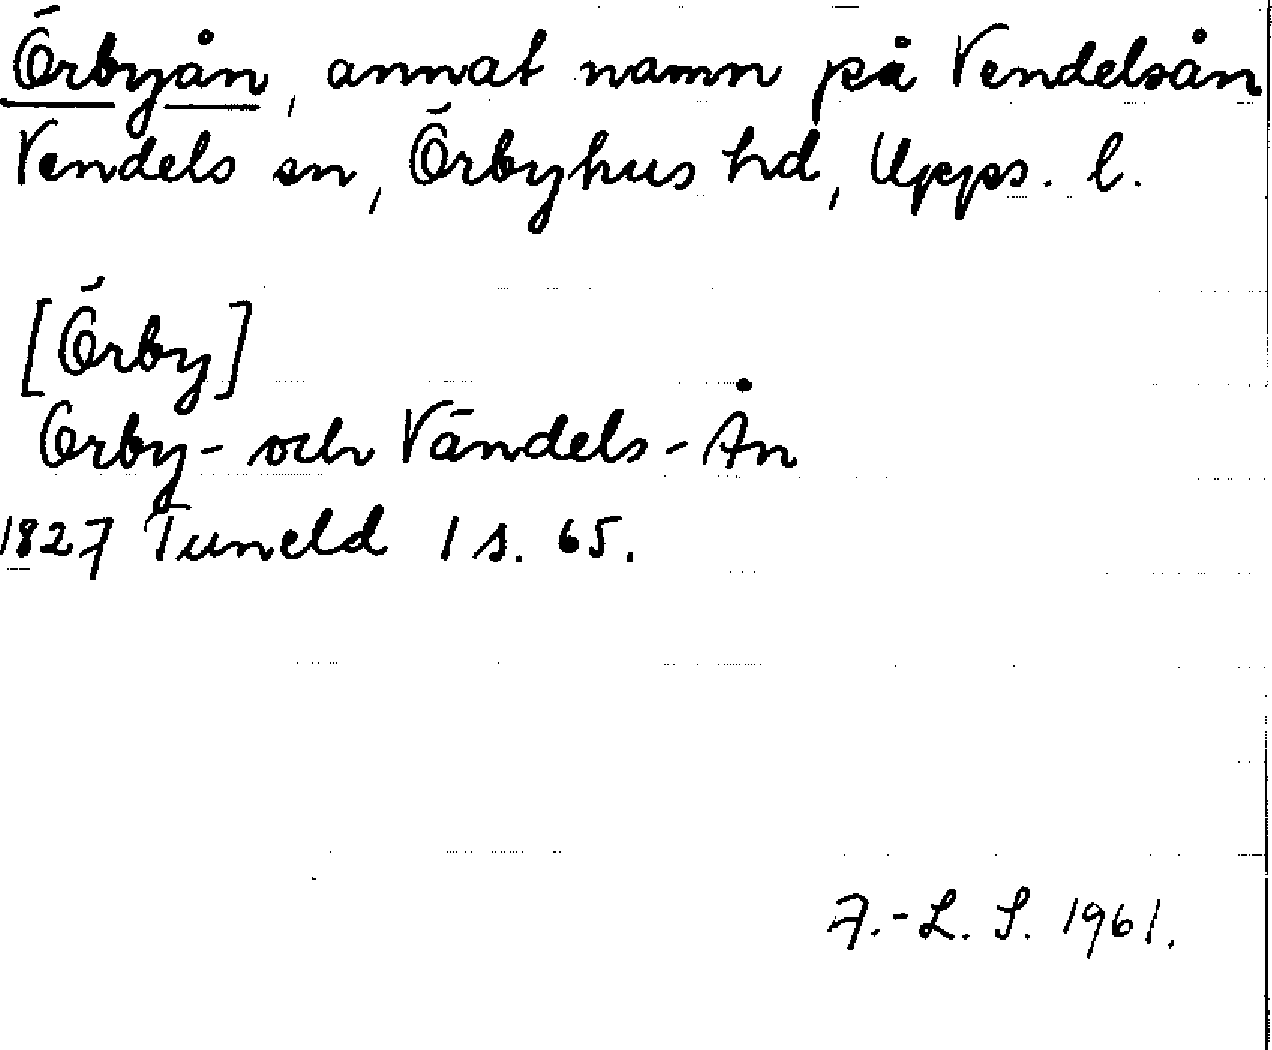 Örbyån, annat namn på Vendelsån
Vendels sn, Örbyhus hd, Upps. l.
[Örby]
Orby- och Vändels-Ån
1827 Tuneld 1 s. 65.
A.-L. S. 1961.